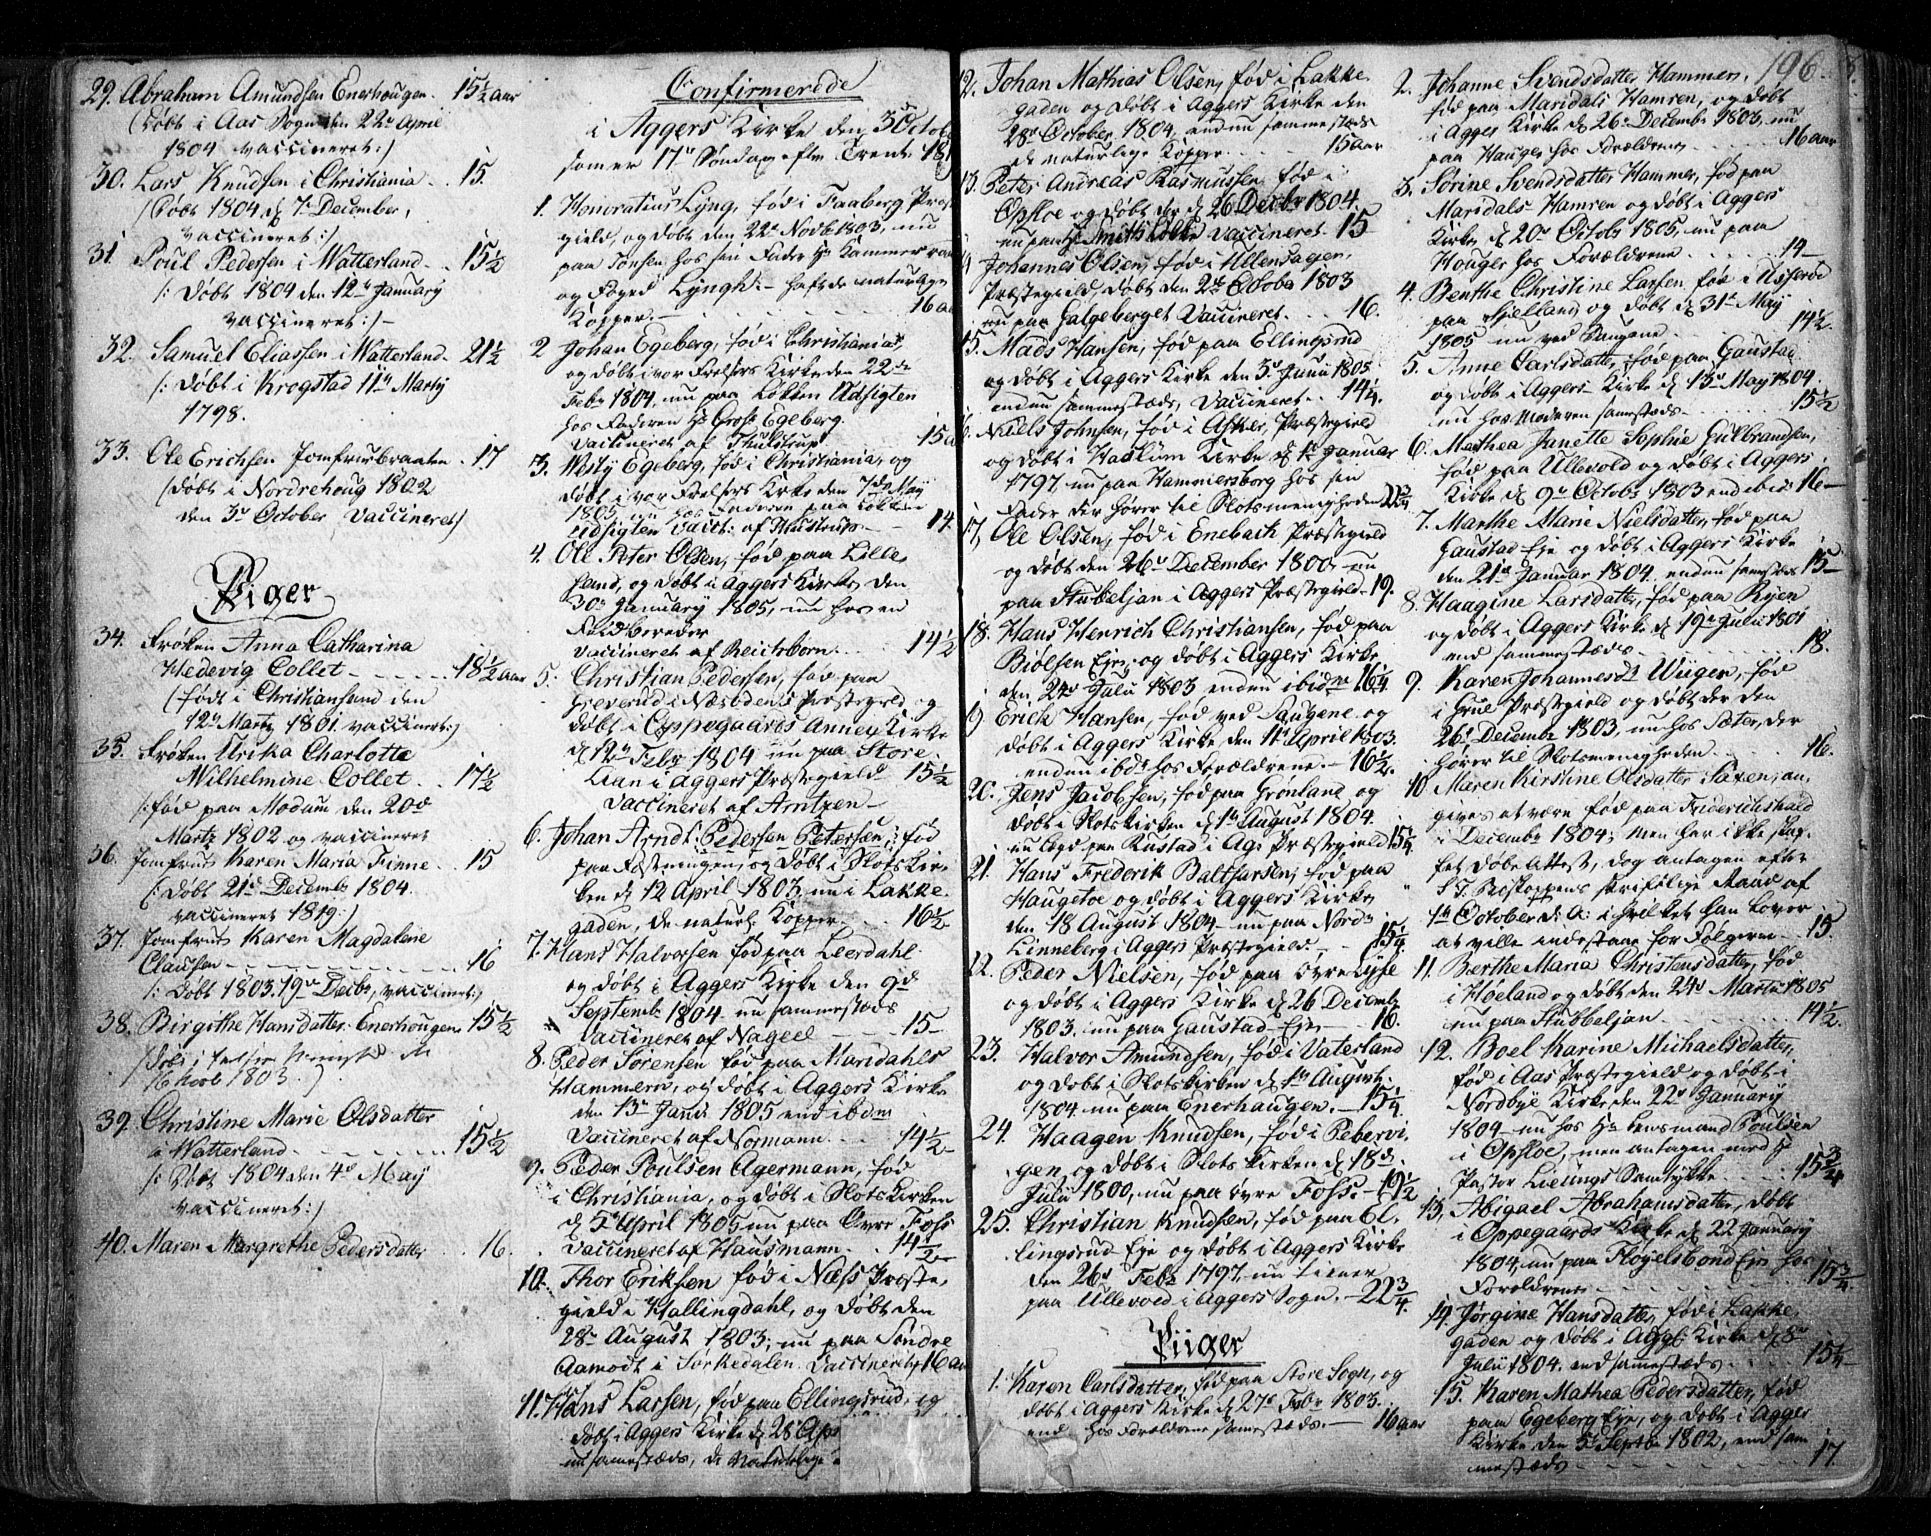 29. Abraham Amundsen Enerhougen. 15½ aar
(Døbt i Aas Sogn den 22de April
1804 vaccineret:)
30. Lars Knudsen i Christiania. 15.
(Døbt 1804 d. 7de December,
vaccineret:)
31. Poul Pedersen i Watterland. 15½
/: Døbt 1804 den 12te January
vaccineret:/
32. Samuel Eliassen i Watterland. 21½
/: Døbt i Krogstad 11te Marty
1798.
33. Ole Erichsen Jomfrubraaten. 17
/Døbt i Nordrehoug 1802
den 3de October vaccineret/
Piger
34. Frøken Anna Catharina
Hedevig Collet 18½ aar
(født i Christiansand den
12te Marty 1801. vaccineret:)
35. Frøken Ulrika Charlotte
Wilhelmine Collet. 17½
/: fød paa Modum den 20de
Marty 1802 og vaccineret
36. Jomfrue Karen Maria Finne. 15
/: Døbt 21de Decemb 1804.
vaccineret 1819:)
37. Jomfrue Karen Magdalene
Clausen 16
/: Døbt 1803. 19de Decbr, vaccineret:/
38. Birgithe Hansdatter Enerhougen 15½
16 1803.)
39. Christine Marie Olsdatter
i Watterland 15½
/: Døbt 1804 den 4de May
vaccineret:)
40. Maren Margrethe Pedersdatter 16.
Confirmerede
i Aggers Kirke den 3 October
som er 17de Søndag efter Trenit.
1. Honoratius Lyng, fød i Faaberg Præste
gield, og døbt den 22de Novb 1803, nu
paa Tonsen hos sin Fader Hr Kammerraad
og Foged Lyngh: hafte de naturlige
Kopper. 16 aar
2 Johan Egeberg, fød i Christiania
og døbt i vor Frelsers Kirke den 22de
Febr 1804, nu paa Løkken Udsigten
hos Faderen Hr Gross: Egeberg.
Vaccineret af Thulstrup 15 aar
3. Westy Egeberg, fød i Christiania, og
døbt i vor Frelsers Kirke den 7de May
1805 nu hos Faderen paa Løkken
Udsigten Vacc: af Thustrup. 14.
4. Ole Peter Olsen, fød paa Lille
Sand, og døbt i Aggers Kirke den
30de January 1805, nu hos en
Feldbereder
vaccineret af Reichborn. 14½
5. Christian Pedersen, fød paa
Greverud i Næsoddens Præstegield og
døbt i Oppegaards Annex Kirke
d 12te Febr 1804 nu paa Store
Aan i Aggers Præstegield 15½
vaccineret af Arntzen
6. Johan Arndt Pedersen Petersen, fød
paa Fæstningen, og døbt i Slotskir,
ken d 12 April 1803, nu i Lakke
gaden, de naturl. Kopper. 16½
7. Hans Halvorsen fød paa Leerdahl
og døbt i Aggers Kirke den 9d
Septemb 1804 nu sammestæds
Vaccineret af Nageel 15
8. Peder Sørensen fød paa Maridahls
Hammeren, og døbt i Aggers Kirke
den 13de Janii 1805 end ibdm
Vaccineret af Normann. 14½
9. Peder Poulsen Agermann, fød
i Christiania, og døbt i Slotskirken
d 5te April 1805 nu paa Øvre Foss
vaccineret af Hausmann. 14½
10. Thor Eriksen fød i Næss Præste,
gield i Hallingdahl, og døbt den
28de August 1803, nu paa Søndre
Aamodt i Sørkedalen. Vaccineret. 16 aar
11. Hans Larsen, fød paa Ellingsrud, og
døbt i Aggers Kirke d 28 Apr
nu samestæds, de Naturlige
12. Johan Mathias Olsen, fød i Lakke
gaden og døbt i Aggers Kirke den
28de October 1804, endnu sammestæds
de naturlige Kopper. 15 aar
13. Peter Andreas Rasmussen fød i
Opsloe og døbt der d 26 Decbr 1804.
nu paa Hr Smiths Løkke vaccineret 15
Johannes Olsen, fød i Ullensagers
Præstegield, døbt den 2de Octobr 1803
nu paa Galgeberget Vaccineret. 16.
15. Mads Hansen, fød paa Ellingsrud
og døbt i Aggers Kirke den 3de Junii 1805
endnu sammestæds, Vaccineret. 14¼.
Niels Johnsen, fød i Asker Præstegield
og døbt i Haslum Kirke d 1te Januar
1797 nu paa Hammersborg hos sin
Fader der hører til Slotsmenigheden 22¾
17. Ole Olsen, fød i Enebach Præstegield
og døbt den 26de December 1800 nu
paa Stubeljan i Aggers Præstegield 19.
18. Hans Henrich Christiansen, fød paa
Biølsen Eje og døbt i Aggers Kirke
den 24de Julii 1803 endnu ibidm 16¼
19 Erich Hansen, fød ved Saugene og
døbt i Aggers Kirke den 11te April 1803.
endnu ibdm hos Forældrene. 16½.
20. Jens Jacobsen, fød paa Grønland og
døbt i Slotskirken d 1te August 1804.
nu paa Rustad i Ag: Præstegield 15¼
21. Hans Frederik Baltsarsen, fød paa
Haugetoe og døbt i Aggers Kirke
den 18 August 1804 nu paa Nord
Linneberg i Aggers Præstegield. 15¼
22. Peder Nielsen, fød paa øvre Lysse
og døbt i Aggers Kirke d 26 Decemb
1803. nu paa Gaustad Eje 16.
23. Halvor Amundsen, fød i Vaterland
og døbt i Slotskirken d 1te August
1804 nu paa Enerhaugen. 15¼
24. Haagen Knudsen, fød i Pebervi,
gen og døbt i Slotskirken d 18de
Julii 1800, nu paa øvre Foss. 19½
25. Christian Knudsen, fød paa El,
lingsrud Eje og døbt i Aggers Kirke
den 26de Febr 1797, nu tiener
paa Ullevold i Aggers Sogn. 22¾.
Piiger
1. Karen Carlsdatter, fød paa Store Sogn, og
døbt i Aggers Kirke d 27de Febr 1803.
end hos Forældrene samestæds. 16 aar
196.
2. Johanne Svendsdatter Hammer,
fød paa Maridals Hamren, og døbt
i Agger Kirke d 26de Decembr 1803, nu
paa Hauger hos Forældrene 16 aar
3. Sørine Svendsdatter Hammer, fød paa
Maridals Hamren og døbt i Aggers
Kirke d 20de Octobr 1805, nu paa
Houger hos Forældrene 14
4. Benthe Christine Larsen fød i Usserød
paa Sjelland, og døbt d 31te May
1805 nu ved Saugene 14½.
5. Anne Carlsdatter, fød paa Gaustad
og døbt i Aggers Kirke d 13de May 1804
nu hos Moderen samestæds 15½
6. Marthea Janette Sophie Gulbrandsen,
fød paa Ullevold og døbt i Aggers
Kirke d 9de Octobr 1803 end ibid: 16
7. Marthe Marie Nielsdatter, fød paa
Gaustad Eje og døbt i Aggers Kirke
den 21de Januar 1804 endnu samestæds 15
8. Haagine Larsdatter, fød paa Ryen
og døbt i Aggers Kirke d 19de Julii 1801
end sammestæds 18.
9. Karen Johannesdr Wiigen, fød
i Grue Præstegield og døbt der den
26de December 1803, nu hos Sæter, der
hører til Slotsmenigheden 16.
10. Maren Kirstine Olsdatter Saxen, an,
gives at være fød paa Friderichshald
i Decembr 1804; men har ikke skaf,
fet Døbe Attest, dog antagen efter
S T. Bishoppens skriftlige Raad af
1te October d: A: i hvilket han lover
at ville indestaae for Følgerne 15.
11. Berthe Maria Christensdatter, fød
i Høeland og døbt den 24de Marti 1805
nu paa Stubbeljan 14½.
12. Boel Karine Michaelsdatter,
fød i Aas Præstegield og døbt i
Nordbye Kirke den 22de January
1804 nu hos Hr Lensmand Poulsen
i Opsloe, men antagen med Hr
Pastor Lielings Samtykke 15¾
13. Abigael Abrahamsdatter, døbt
i Oppegaards Kirke d 22 January
1804, nu paa Stoyelsbond Eje hos
Forældrene 15¾.
14. Jørgine Hansdatter, fød i Lakke
gaden og døbt i Agg: Kirke d 8de
Julii 1804. end samestæds. 15¼
15. Karen Mathea Pedersdatter, fød
paa Egeberg Eje, og døbt i Agger
Kirke den 5te Septbr 1802, end sam
mestæds 17.